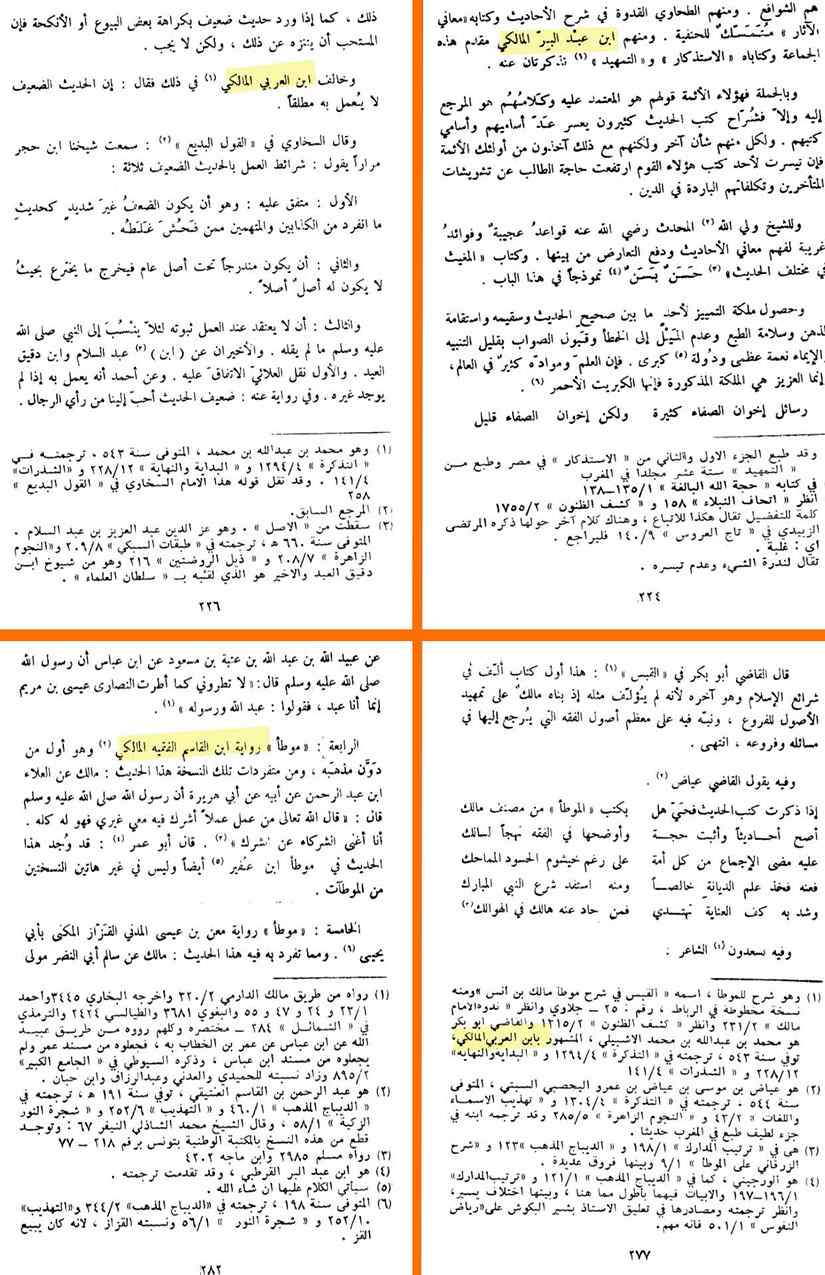 هم الشوافع . ومنهم الطحاوي القدوة في شرح الأحاديث وكتابه «معاني
الآثار» مُتَمَسَّك للحنفية . ومنهم ابن عبد البر المالكي مقدم هذه
الجماعة وكتاباه « الاستذكار » و« التمهيد » (١) تذكرتان عنه .
وبالجملة فهؤلاء الأئمة قولهم هو المعتمد عليه وكلامُهُم هو المرجع
إليه وإلا فشُرّاح كتب الحديث كثيرون يعسر عدّ أساميهم وأسامي
كتبهم . ولكل منهم شأن آخر ولكنهم مع ذلك آخذون من أولئك الأئمة
فإن تيسرت لأحد كتب هؤلاء القوم ارتفعت حاجة الطالب عن تشويشات
المتأخرين وتكلفاتهم الباردة في الدين .
وللشيخ ولي الله (٢) المحدث رضي الله عنه قواعدُ عجيبةٌ وفوائدُ
غريبة لفهم معاني الأحاديث ودفع التعارض من بينها . وكتاب « المغيث
في مختلف الحديث» (٣) حَسَنٌ بَسَنٌ (٤) نموذجاً في هذا الباب .
وحصول ملكة التمييز لأحد ما بين صحيح الحديث وسقيمه واستقامة
الذهن وسلامة الطبع وعدم المَيْل إلى الخطأ وقَبول الصواب بقليل التنبيه
والإيماء نعمة عظمى ودُولة (٥) كبرى . فإن العلم وموادّه كثيرٌ في العالم،
إنما العزيز هي الملكة المذكورة فإنها الكبريت الأحمر (٦) .
رسائل إخوان الصفاء كثيرة ولكن إخوان الصفاء قليل
وقد طبع الجزء الاول والثاني من « الاستذكار » في مصر وطبع من
« التمهيد » ستة عشر مجلدا في المغرب
في كتابه « حجة الله البالغة » ١٣٥/١–١٣٨
انظر « اتحاف النبلاء » ١٥٨ و « كشف الظنون » ١٧٥٥/٢
كلمة للتفضيل تقال هكذا للاتباع ، وهناك كلام آخر حولها ذكره المرتضى
الزبيدي في « تاج العروس » ١٤٠/٩ فليراجع .
اي : غلبة .
تقال لندرة الشيء وعدم تيسره .
٢٢٤
ذلك ، كما إذا ورد حديث ضعيف بكراهة بعض البيوع أو الأنكحة فإن
المستحب أن يتنزه عن ذلك ، ولكن لا يجب .
وخالف ابن العربي المالكي (١) في ذلك فقال : إن الحديث الضعيف
لا يُعمل به مطلقاً .
وقال السخاوي في « القول البديع » (٢) : سمعت شيخنا ابن حجر
مراراً يقول : شرائط العمل بالحديث الضعيف ثلاثة :
الأول : متفق عليه : وهو أن يكون الضعفُ غيرَ شديدٍ كحديثِ
ما انفرد من الكذابين والمتهمين ممن فَحُشَ غَلَطُه .
والثاني : أن يكون مندرجاً تحت أصل عام فيخرج ما يخترع بحيثُ
لا يكون له أصلٌ أصلاً .
والثالث : أن لا يعتقد عند العمل ثبوته لئلا يُنْسَبَ إلى النبي صلى الله
عليه وسلم ما لم يقله . والأخيران عن (ابن) (٣) عبد السلام وابن دقيق
العيد . والأول نقل العلائيّ الاتفاق عليه . وعن أحمد أنه يعمل به إذا لم
يوجد غيره . وفي رواية عنه : ضعيف الحديث أحبّ إلينا من رأي الرجال .
(١) وهو محمد بن عبدالله بن محمد ، المتوفى سنة ٥٤٣ ، ترجمته في
« التذكرة » ١٢٩٤/٤ و « البداية والنهاية » ٢٢٨/١٢ و «الشذرات»
١٤١/٤ . وقد نقل قوله هذا الامام السخاوي في « القول البديع »
٢٥٨
(٢) المرجع السابق.
(٣) سقطت من « الاصل » . وهو عز الدين عبد العزيز بن عبد السلام .
المتوفى سنة ٦٦٠ هـ ، ترجمته في « طبقات السبكي » ٢٠٩/٨ و«النجوم
الزاهرة » ٢٠٨/٧ و « ذيل الروضتين » ٢١٦ وهو من شيوخ ابن
دقيق العيد والاخير هو الذي لقبه بـ « سلطان العلماء » .
٢٢٦
قال القاضي أبو بكر في « القبس » (١) : هذا أول كتاب أُلف في
شرائع الإسلام وهو آخره لأنه لم يُؤلَّف مثله إذ بناه مالكٌ على تمهيد
الأصول للفروع ، ونبّه فيه على معظم أصول الفقه التي يُرجع إليها في
مسائله وفروعه ، انتهى .
وفيه يقول القاضي عياض (٢) .
إذا ذكرت كتب الحديث فحيّ هل بكتب « الموطأ » من مصنف مالك
أصح أحاديثاً وأثبت حجة وأوضحها في الفقه نهجاً لسالك
عليه مضى الإجماع من كل أمة على رغم خيشوم الحسود المماحك
فعنه فخذ علم الديانة خالصاً ومنه استفد شرع النبي المبارك
وشد به كف العناية تهتدي فمن حاد عنه هالك في الهوالك (٣)
وفيه لسعدون (٤) الشاعر :
(١) وهو شرح للموطأ ، اسمه « القبس في شرح موطأ مالك بن أنس »ومنه
نسخة مخطوطة في الرباط ، رقم : ٢٥ – جلاوي وانظر « ندوةالامام
مالك » ٢٣١/٢ وانظر « كشف الظنون » ١٣١٥/٢ والقاضي ابو بكر
هو محمد بن عبدالله بن محمد الاشبيلي ، المشهور بابن العربي المالكي،
توفي سنة ٥٤٣ ، ترجمته في « التذكرة » ١٢٩٤/٤ و « البدايةوالنهاية»
٢٢٨/١٢ و « الشذرات » ١٤١/٤
(٢) هو عياض بن موسى بن عياض بن عمرو اليحصبي السبتي ، المتوفى
سنة ٥٤٤ . ترجمته في « التذكرة » ١٣٠٤/٤ و « تهذيب الاسماء
واللغات » ٤٣/٢ و « النجوم الزاهرة » ٢٨٥/٥ وقد ترجمه ابنه في
جزء لطيف طبع في المغرب حديثا .
(٣) هي في « ترتيب المدارك » ١٩٨/١ و « الديباج المذهب »١٢٣ و «شرح
الزرقاني على الموطأ » ٩/١ وبينها فروق عديدة .
(٤) هو الورجيني ، كما في « الديباج المذهب » ١٢١/١ و «ترتيب المدارك»
١٩٦/١–١٩٧ والابيات فيهما بأطول مما هنا ، وبينها اختلاف يسير،
وانظر ترجمته ومصادرها في تعليق الاستاذ بشير البكوش على«رياض
النفوس » ٥٠١/١ فانه مهم.
٢٧٧
عن عبيد الله بن عبد الله بن عتبة بن مسعود عن ابن عباس أن رسول الله
صلى الله عليه وسلم قال: « لا تطروني كما أطرت النصارى عيسى بن مريم
إنما أنا عبد ، فقولوا : عبد الله ورسوله » (١) .
الرابعة : « موطأ » رواية ابن القاسم الفقيه المالكي (٢) وهو أول من
دوّن مذهبَه ، ومن متفردات تلك النسخة هذا الحديث : مالك عن العلاء
ابن عبد الرحمن عن أبيه عن أبي هريرة أن رسول الله صلى الله عليه وسلم
قال : « قال الله تعالى من عمل عملاً أشرك فيه معي غيري فهو له كله .
أنا أغنى الشركاء عن الشرك » (٣) . قال أبو عمر (٤) : قد وُجد هذا
الحديث في موطأ ابن عُفير (٥) أيضاً وليس في غير هاتين النسختين
من الموطآت .
الخامسة : « موطأ » رواية معن بن عيسى المدني القَزّاز المكنى بأبي
يحيى (٦) . ومما تفرد به فيه هذا الحديث : مالك عن سالم أبي النضر مولى
(١) رواه من طريق مالك الدارمي ٣٢٠/٢ واخرجه البخاري ٣٤٤٥ واحمد
٢٣/١ و ٢٤ و ٤٧ و ٥٥ والبغوي ٣٦٨١ والطيالسي ٢٤٢٤ والترمذي
في « الشمائل » ٢٨٤ – مختصرة وكلهم رووه من طريق عبيد
الله عن ابن عباس عن عمر بن الخطاب به ، فجعلوه من مسند عمر ولم
يجعلوه من مسند ابن عباس ، وذكره السيوطي في « الجامع الكبير»
٨٩٥/٢ وزاد نسبته للحميدي والعدني وعبدالرزاق وابن حبان .
(٢) هو عبد الرحمن بن القاسم العتيقي ، توفي سنة ١٩١ هـ ، ترجمته في
« الديباج المذهب » ٤٦٠/١ و « التهذيب » ٢٥٢/٦ و « شجرة النور
الزكية » ٥٨/١ ، وقال الشيخ محمد الشاذلي النيفر ٦٧ : وتوجد
قطع من هذه النسخ بالمكتبة الوطنية بتونس برقم ٢١٨ – ٧٧
(٣) رواه مسلم ٢٩٨٥ وابن ماجه ٤٢٠٢
(٤) هو ابن عبد البر القرطبي ، وقد تقدمت ترجمته .
(٥) سيأتي الكلام عليها ان شاء الله .
(٦) المتوفى سنة ١٩٨ ، ترجمته في «الديباج المذهب» ٣٤٤/٢ و«التهذيب»
٢٥٢/١٠ و « شجرة النور » ٥٦/١ ونسبته القزاز ، لانه كان يبيع
القز .
٢٨٢